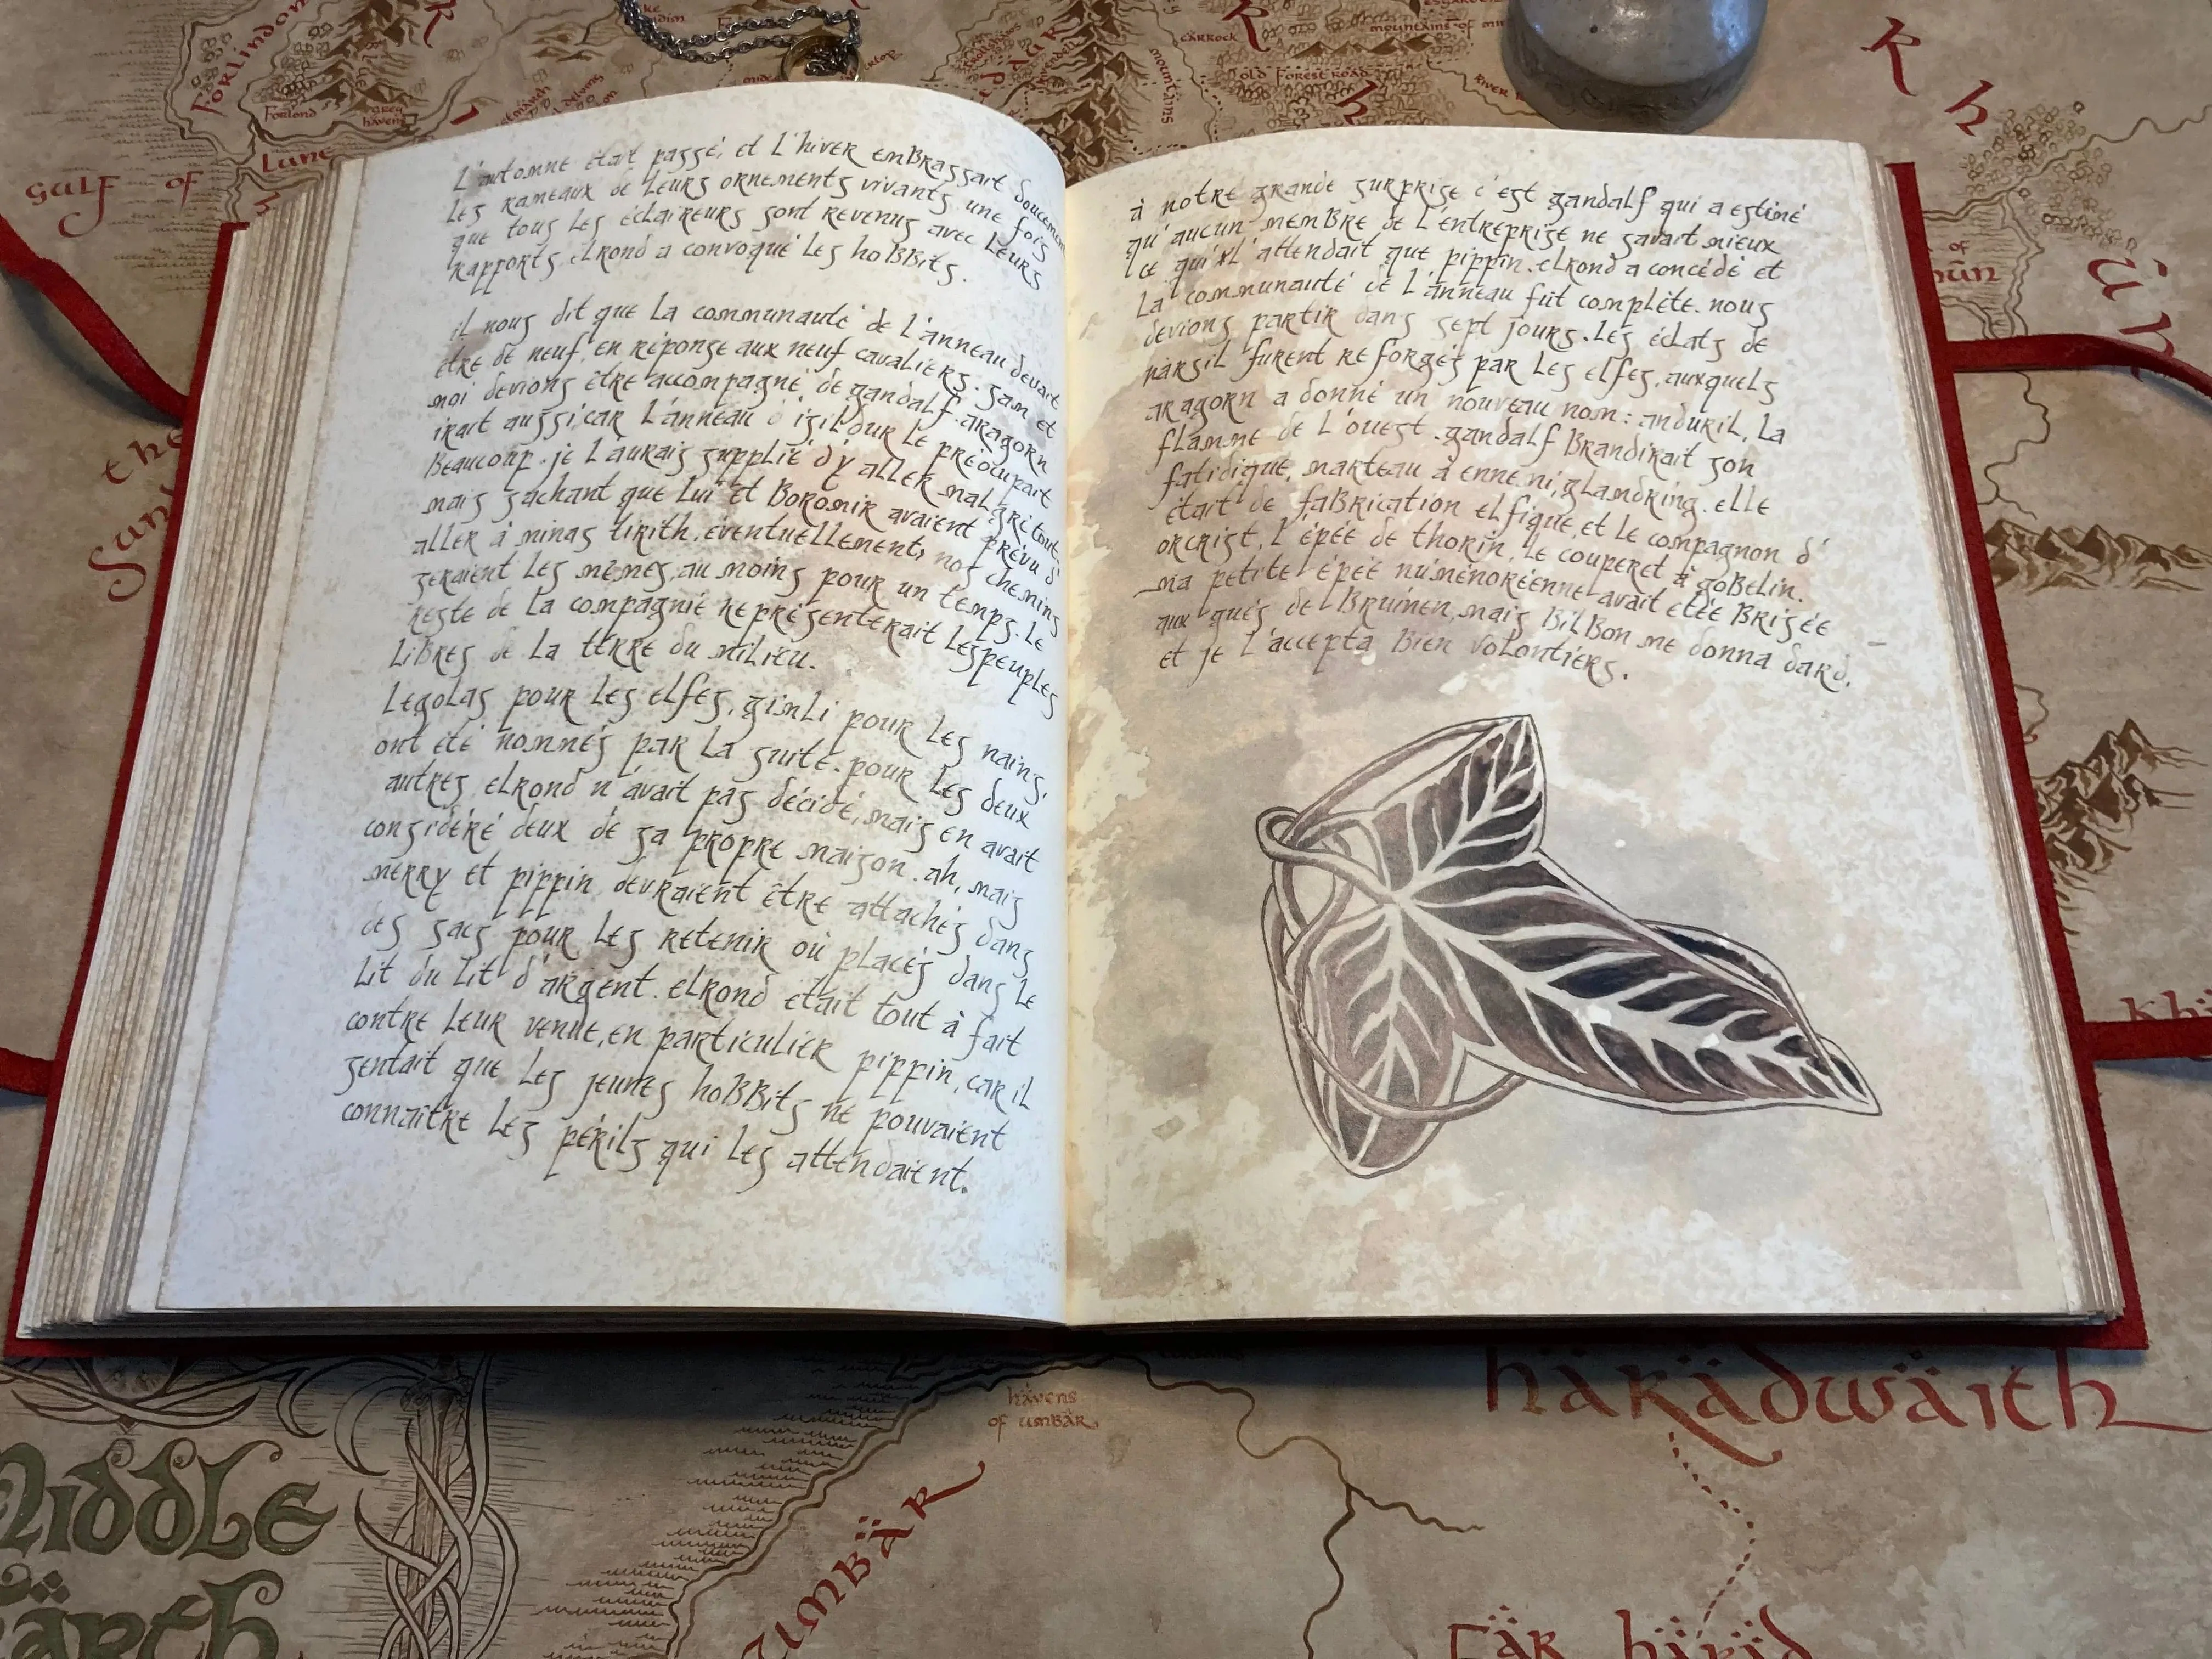 L'automne était passé, et L'hiver emBrassait doucement
Les rameaux de Leurs ornements vivants, une fois
que tous Les éclaireurs sont revenus avec Leurs
rapports, elrond a convoqué Les hoBBits.
il nous dit que La communauté de L'anneau devait
être de neuf, en réponse aux neuf cavaliers. sam et
moi devions être accompagné de gandalf. aragorn
irait aussi, car L'anneau d'isildur Le préoccupait
Beaucoup. je L'aurais supplié d'y aller malgré tout,
mais sachant que Lui et Boromir avaient prévu d'
aller à minas tirith, éventuellement, nos chemins
seraient Les mêmes, au moins pour un temps. Le
reste de La compagnie représenterait Les peuples
LiBres de La terre du miLieu.
Legolas pour Les elfes, gimli pour Les nains,
ont été nommés par La suite. pour Les deux
autres, elrond n'avait pas décidé, mais en avait
considéré deux de sa propre maison. ah, mais
merry et pippin devraient être attachés dans
des sacs pour Les retenir où placés dans Le
Lit du Lit d'argent. elrond était tout à fait
contre Leur venue, en particulier pippin, car il
sentait que Les jeunes hoBBits ne pouvaient
connaître Les périls qui Les attendaient.
à notre grande surprise c'est gandalf qui a estimé
qu'aucun memBre de L'entreprise ne savait mieux
ce qui L'attendait que pippin. elrond a concédé et
La communauté de L'anneau fut complète. nous
devions partir dans sept jours. Les éclats de
narsil furent reforgés par Les elfes, auxquels
aragorn a donné un nouveau nom: anduril, La
flamme de L'ouest. gandalf Brandirait son
fatidique, marteau à ennemi, glamdring. elle
était de faBrication elfique, et Le compagnon d'
orcrist, L'épée de thorin, Le couperet à goBelin.
ma petite épée numénoréenne avait etée Brisée
aux gués de Bruinen, mais BilBon me donna dard,
et je L'accepta Bien volontiers.
forlindon
forlond
grey
havens
gulf of
Lune
carrock
old forest road
mountains
river
Rh
Khand
havens
of umbar
umbär
häradwaith
fär häräd
middle
ëärth